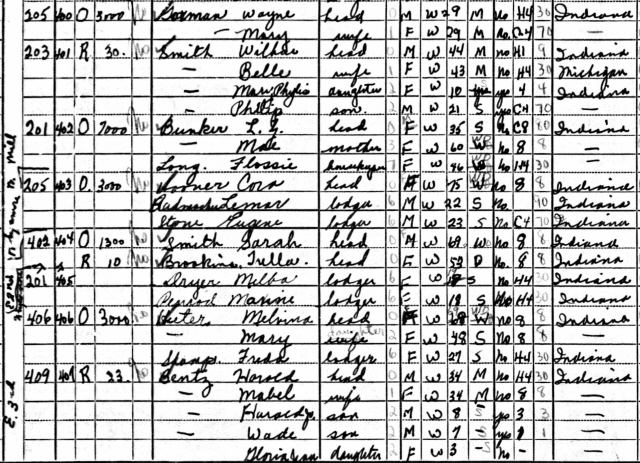 205 400 O 3000 No Gorman Wayne head 0 M W 29 M No H4 30 Indiana
— Mary wife 1 F W 29 M no C4 70 —
203 401 R 30. No Smith Wilbur head 0 M W 44 M no H1 9 Indiana
— Belle wife 1 F W 43 M no H4 30 Michigan
— Mary Phylis daughter 2 F W 10 yes 4 4 Indiana
— Phillip son 2 M W 21 S yes C4 70 —
201 402 O 7000 No Bunker L. G. head 0 W 35 S No C8 80 Indiana
— Mae mother F W 60 no 8 8 —
Long Flossie housekeeper F W 46 no H4 30 —
205 403 O. 3000 No Cora head 0 W 75 W no 8 8 Indiana
Lemar lodger 6 M W 22 S no 40 Indiana
Stone Eugene lodger 6 M W 23 S No C4 70 Indiana
402 404 O 1300 No Smith Sarah head 0 W 69 W no 8 8 Indiana
R 10 No Trella head 0 F W 52 D no. 8 8 Indiana
201 405 Dryer Melba lodger 6 F W S no H4 30 Indiana
Maxine lodger 6 F W 18 S No H4 30 Indiana
406 406 O 3000 No Melvina head 0 W no 8 8 Indiana
— Mary wife daughter 2 F W 48 S No 8 8 —
Stamp Freda lodger 6 F W 27 S no H4 30 Indiana
409 407 R 23 No Bentz Harold head 0 M W 34 M no H4 30 Indiana
— Mabel wife 1 F W 34 M no 8 8 —
— Harold Jr. son 2 M W 8 S yes 3 3 —
— Wade son 2 M W 7 S yes 1 1 —
Gloria Jean daughter 2 F W 3 — No — —
E. 3rd